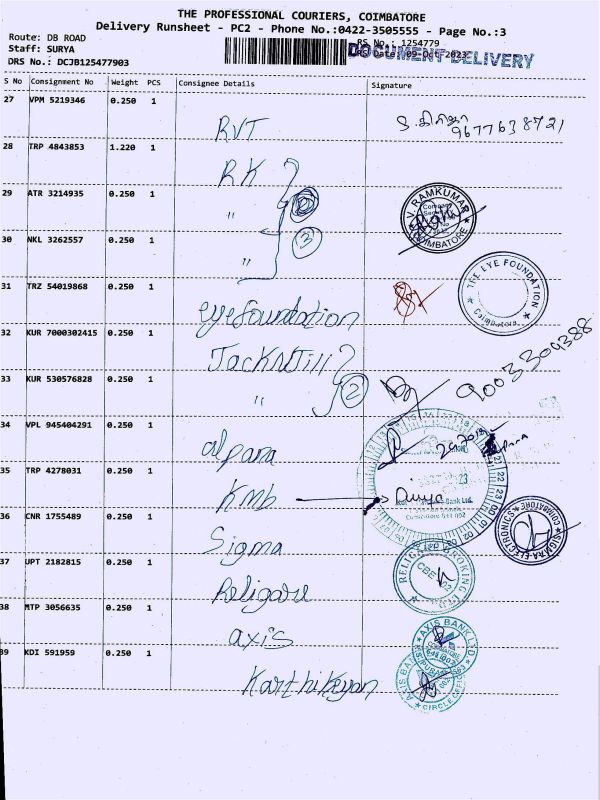 THE PROFESSIONAL COURIERS, COIMBATORE
Delivery Runsheet - PC2 - Phone No.:0422-3505555 - Page No.:3
Route: DB ROAD RS No.: 1254779
Staff: SURYA RS Date: 09-Oct-2023
DOCUMENT DELIVERY
DRS No.: DCJB125477903
S No Consignment No Weight PCS Consignee Details Signature
27 VPM 5219346 0.250 1 RVT 9677638721
28 TRP 4843853 1.220 1 RK
29 ATR 3214935 0.250 1 "
V. RAMKUMAR
COIMBATORE
30 NKL 3262557 0.250 1 " 3
31 TRZ 54019868 0.250 1 eyefoundation
THE EYE FOUNDATION
Coimbatore
32 KUR 7000302415 0.250 1 JackNJill
33 KUR 530576828 0.250 1 " 2 9003304388
34 VPL 945404291 0.250 1 alpana
35 TRP 4278031 0.250 1 KMB Divya
Bank Ltd.
36 CNR 1755489 0.250 1 Sigma
37 UPT 2182815 0.250 1 Religare
38 MTP 3056635 0.250 1 axis
AXIS BANK LTD
39 KDI 591959 0.250 1 Karthikeyan
CIRCLE OFFICE